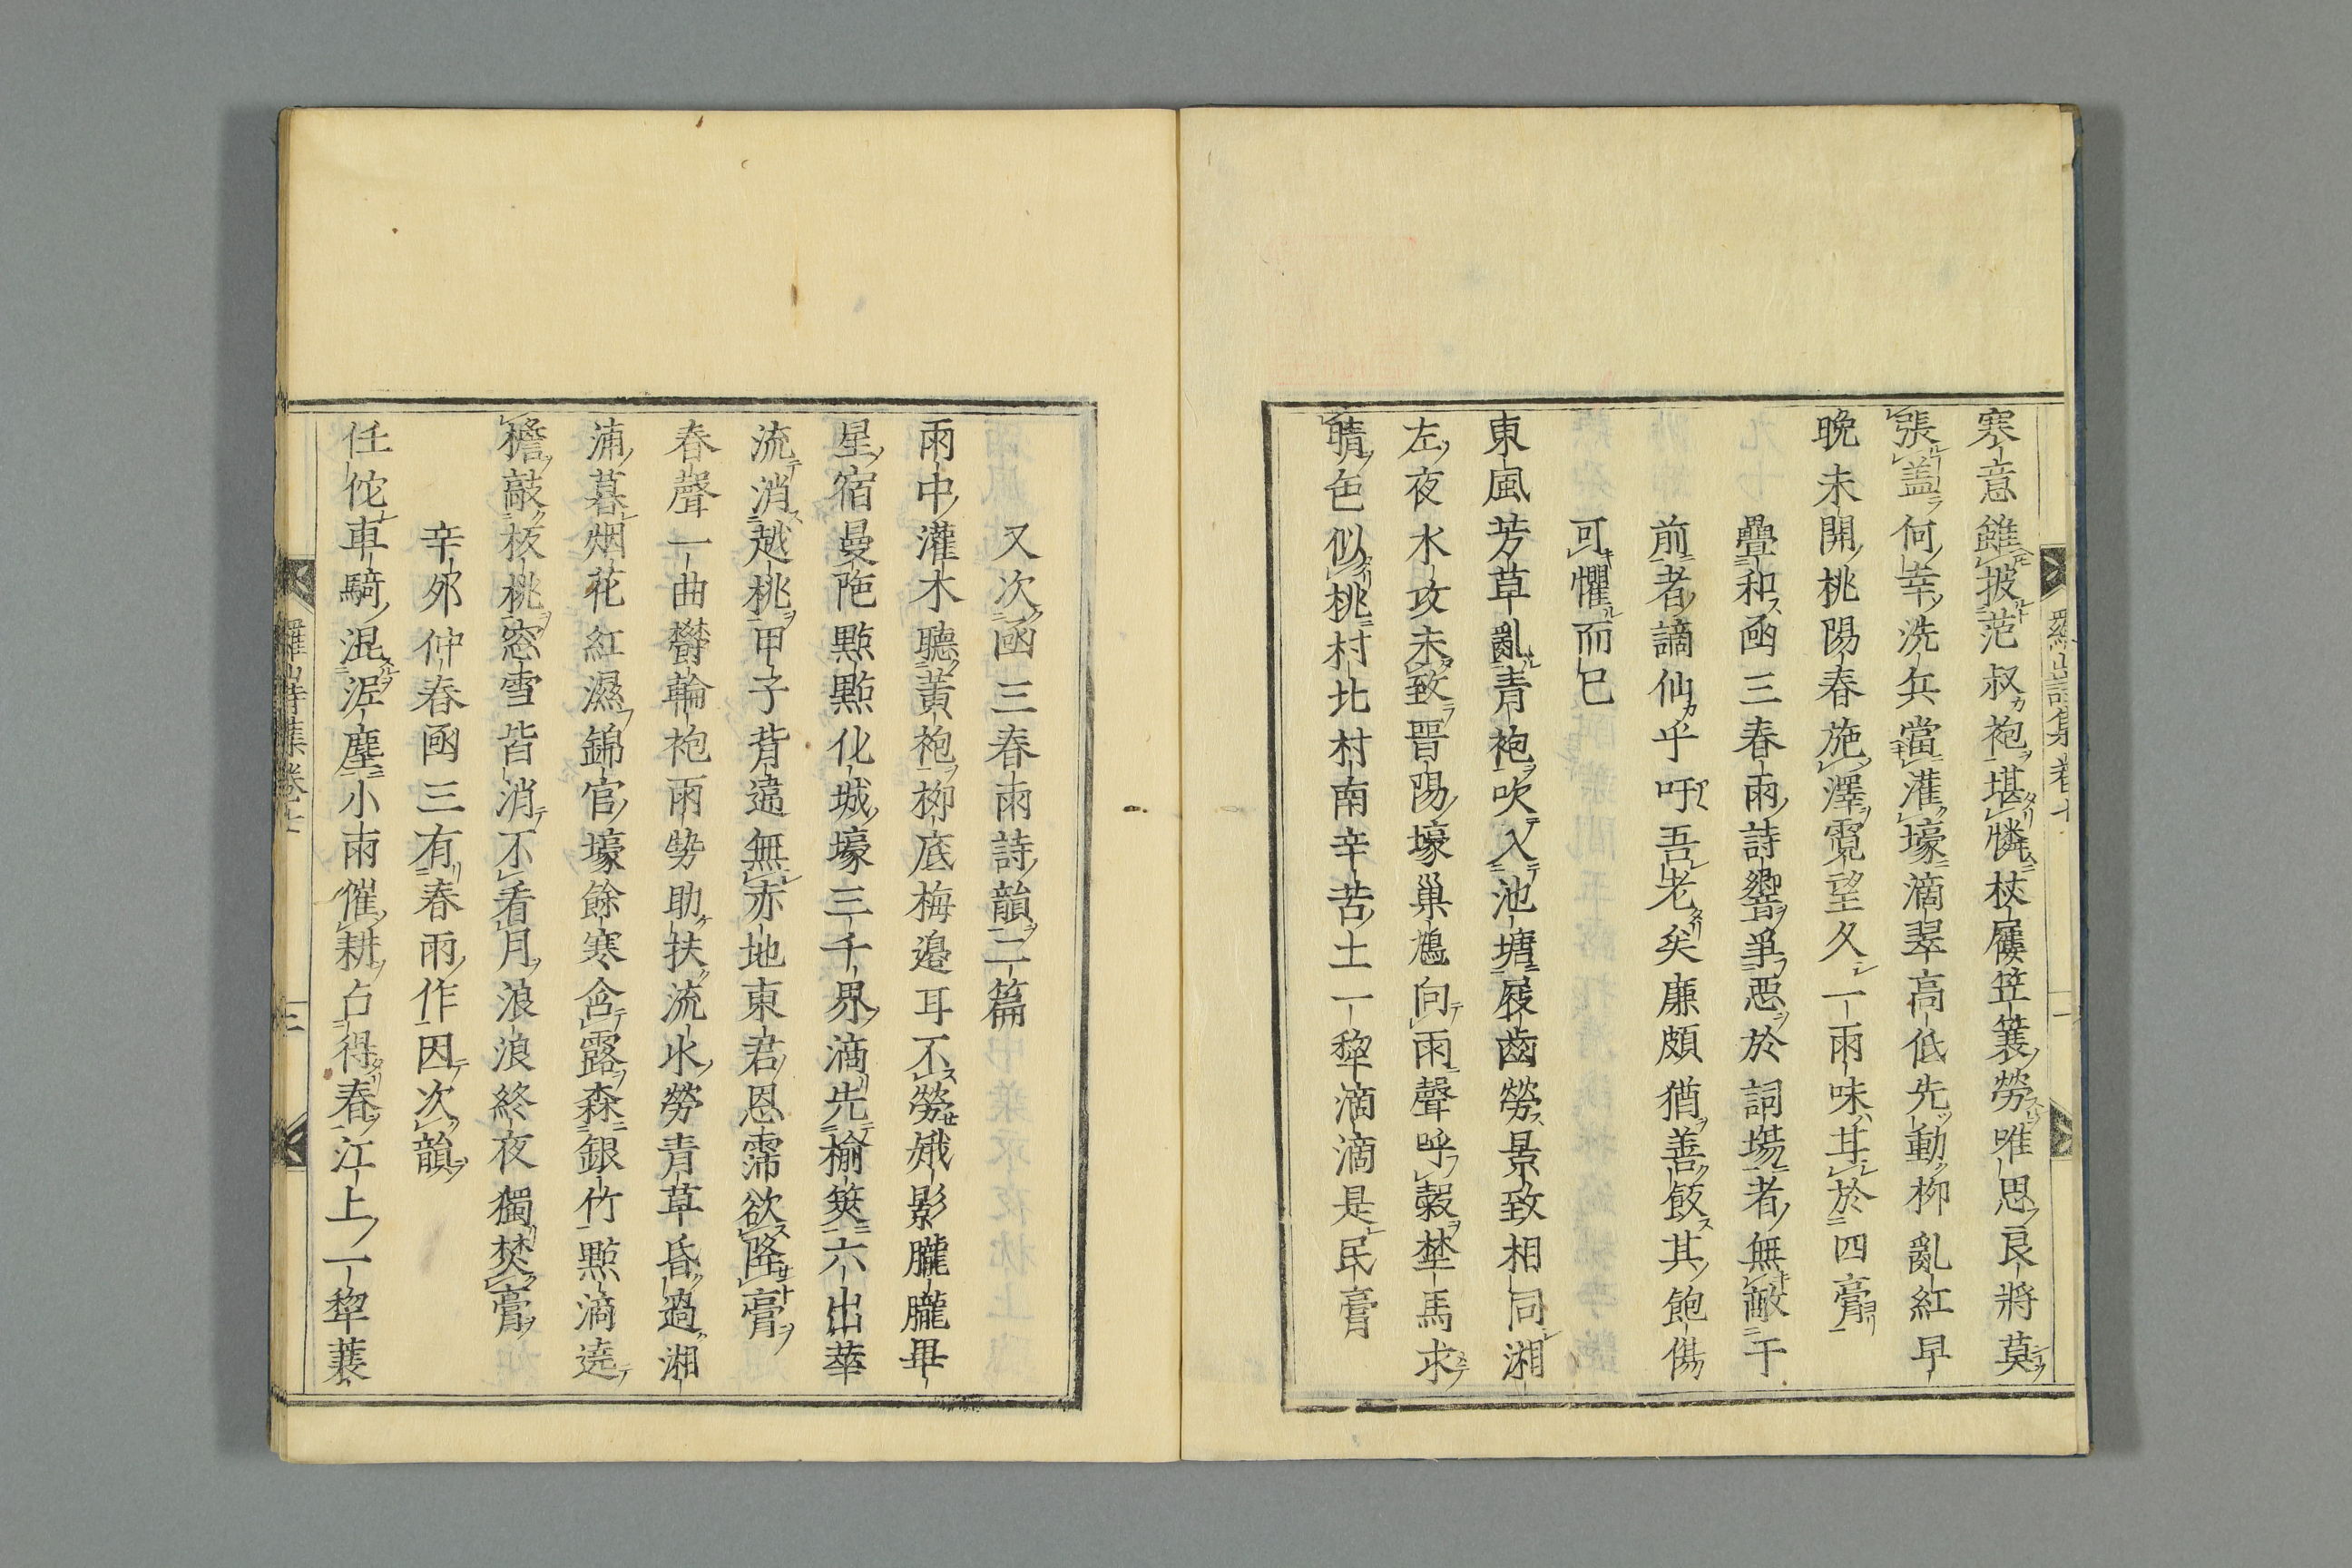 寒意雖披范叔袍堪憐杖屨笠蓑勞唯思良將莫
張蓋何幸洗兵當灌壕滴翠高低先動柳亂紅早
晚未開桃陽春施澤霓望久一雨味甘於四膏
疊和函三春雨詩響爭惡於詞場者無敵于
前者謫仙乎吁吾老矣廉頗猶善飯其飽傷
可懼而已
東風芳草亂青袍吹入池塘屐齒勞景致相同湘
左夜水攻未致晉陽壕巢鳩向雨聲呼穀埜馬求
晴色似桃村北村南辛苦土一犂滴滴是民膏
羅山詩集卷七
又次函三春雨詩韻二篇
雨中灌木聽黃袍柳底梅邊耳不勞娥影朧朧畢
星宿曼陁點點化城壕三千界滴先榆筴六出華
流消越桃甲子背違無赤地東君恩霈欲降膏
春聲一曲鬱輪袍雨勢助扶流水勞青草昏過湘
浦暮烟花紅濕錦官壕餘寒含露森銀竹點滴遶
檐敲核桃窓雪皆消不看月浪浪終夜獨焚膏
辛夘仲春函三有春雨作因次韻
任佗車騎混泥塵小雨催耕占得春江上一犂蓑
羅山詩集卷七 三